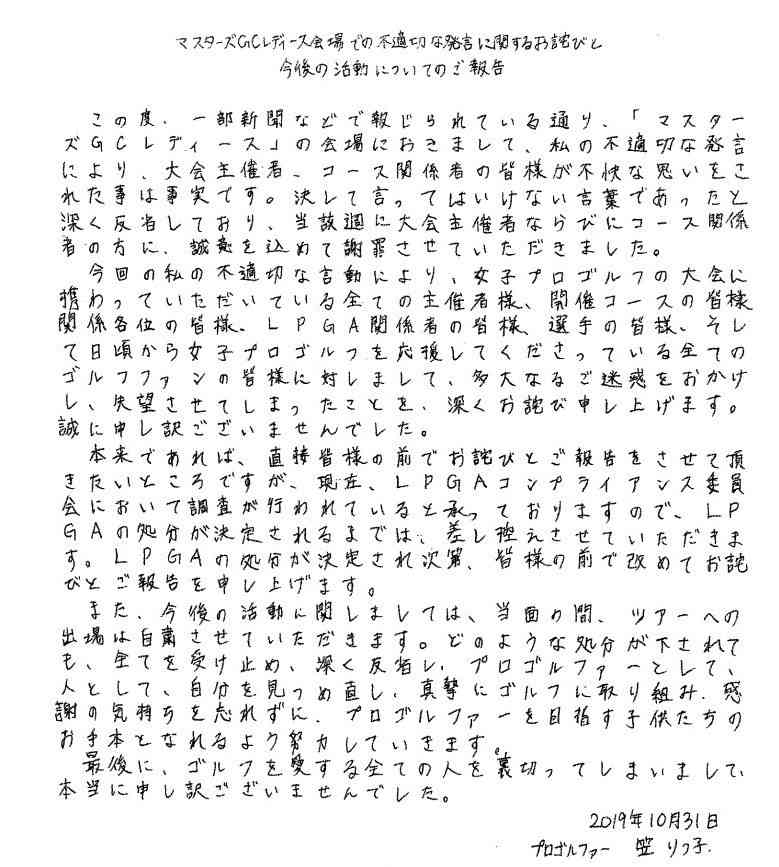 マスターズGCレディース会場での不適切な発言に関するお詫びと
今後の活動についてのご報告
この度、一部新聞などで報じられている通り、「マスター
ズGCレディース」の会場におきまして、私の不適切な発言
により、大会主催者、コース関係者の皆様が不快な思いをさ
れた事は事実です。決して言ってはいけない言葉であったと
深く反省しており、当該週に大会主催者ならびにコース関係
者の方に、誠意を込めて謝罪させていただきました。
今回の私の不適切な言動により、女子プロゴルフの大会に
携わっていただいている全ての主催者様、開催コースの皆様
関係各位の皆様、LPGA関係者の皆様、選手の皆様、そし
て日頃から女子プロゴルフを応援してくださっている全ての
ゴルフファンの皆様に対しまして、多大なるご迷惑をおかけ
し、失望させてしまったことを、深くお詫び申し上げます。
誠に申し訳ございませんでした。
本来であれば、直接皆様の前でお詫びとご報告をさせて頂
きたいところですが、現在、LPGAコンプライアンス委員
会において調査が行われていると承っておりますので、LP
GAの処分が決定されるまでは、差し控えさせていただきま
す。LPGAの処分が決定され次第、皆様の前で改めてお詫
びとご報告を申し上げます。
また、今後の活動に関しましては、当面の間、ツアーへの
出場は自粛させていただきます。どのような処分が下されて
も、全てを受け止め、深く反省し、プロゴルファーとして、
人として、自分を見つめ直し、真摯にゴルフに取り組み、感
謝の気持ちを忘れずに、プロゴルファーを目指す子供たちの
お手本となれるよう努力していきます。
最後に、ゴルフを愛する全ての人を裏切ってしまいまして、
本当に申し訳ございませんでした。
2019年10月31日
プロゴルファー 笠りつ子